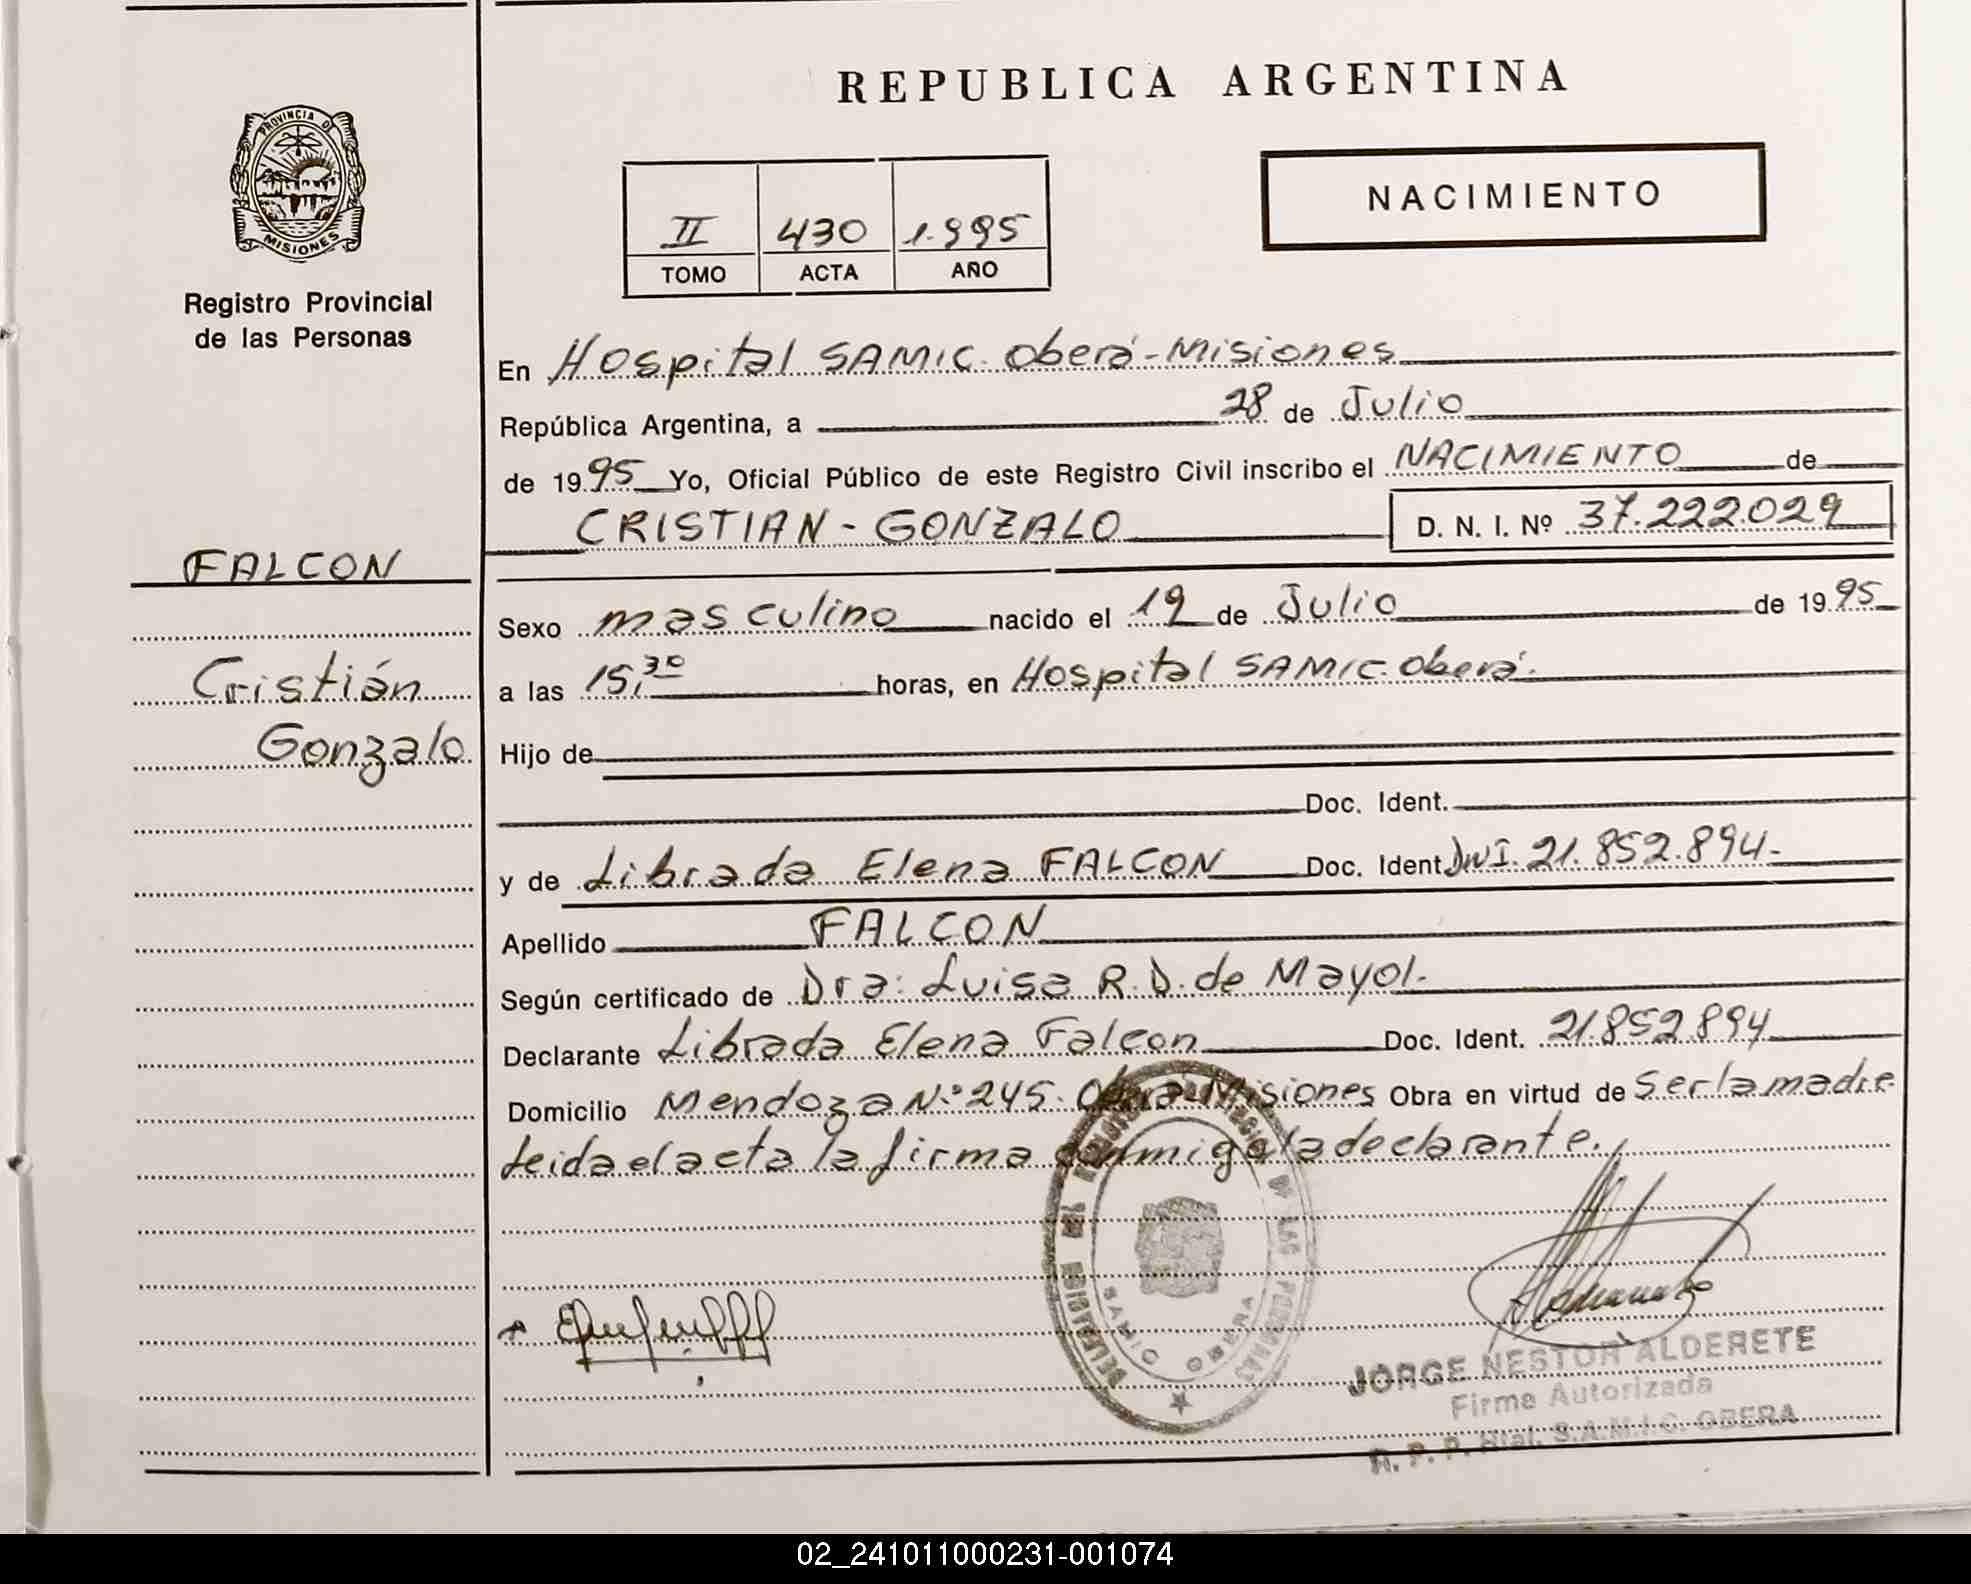 REPUBLICA ARGENTINA
PROVINCIA DE
MISIONES
Registro Provincial
de las Personas
NACIMIENTO
II 430 1.995
TOMO ACTA AÑO
En Hospital SAMIC. Oberá-Misiones
República Argentina, a 28 de Julio
de 1995 Yo, Oficial Público de este Registro Civil inscribo el NACIMIENTO de
CRISTIAN - GONZALO D. N. I. Nº 37.222.029
FALCON
Cristián
Gonzalo
Sexo masculino nacido el 19 de Julio de 1995
a las 15,30 horas, en Hospital SAMIC. Oberá.
Hijo de
Doc. Ident.
y de Librada Elena FALCON Doc. Ident. DNI. 21.852.894-
Apellido FALCON
Según certificado de Dra: Luisa R. D. de Mayol.
Declarante Librada Elena Falcon Doc. Ident. 21.852.894
Domicilio Mendoza N.º 245. Oberá-Misiones Obra en virtud de Ser la madre
Leida el acta la firma conmigo la declarante.
SAMIC OBERA
DE LAS PERSONAS
JORGE NESTOR ALDERETE
Firma Autorizada
R. P. P. Htal. S.A.M.I.C. OBERA
02_241011000231-001074